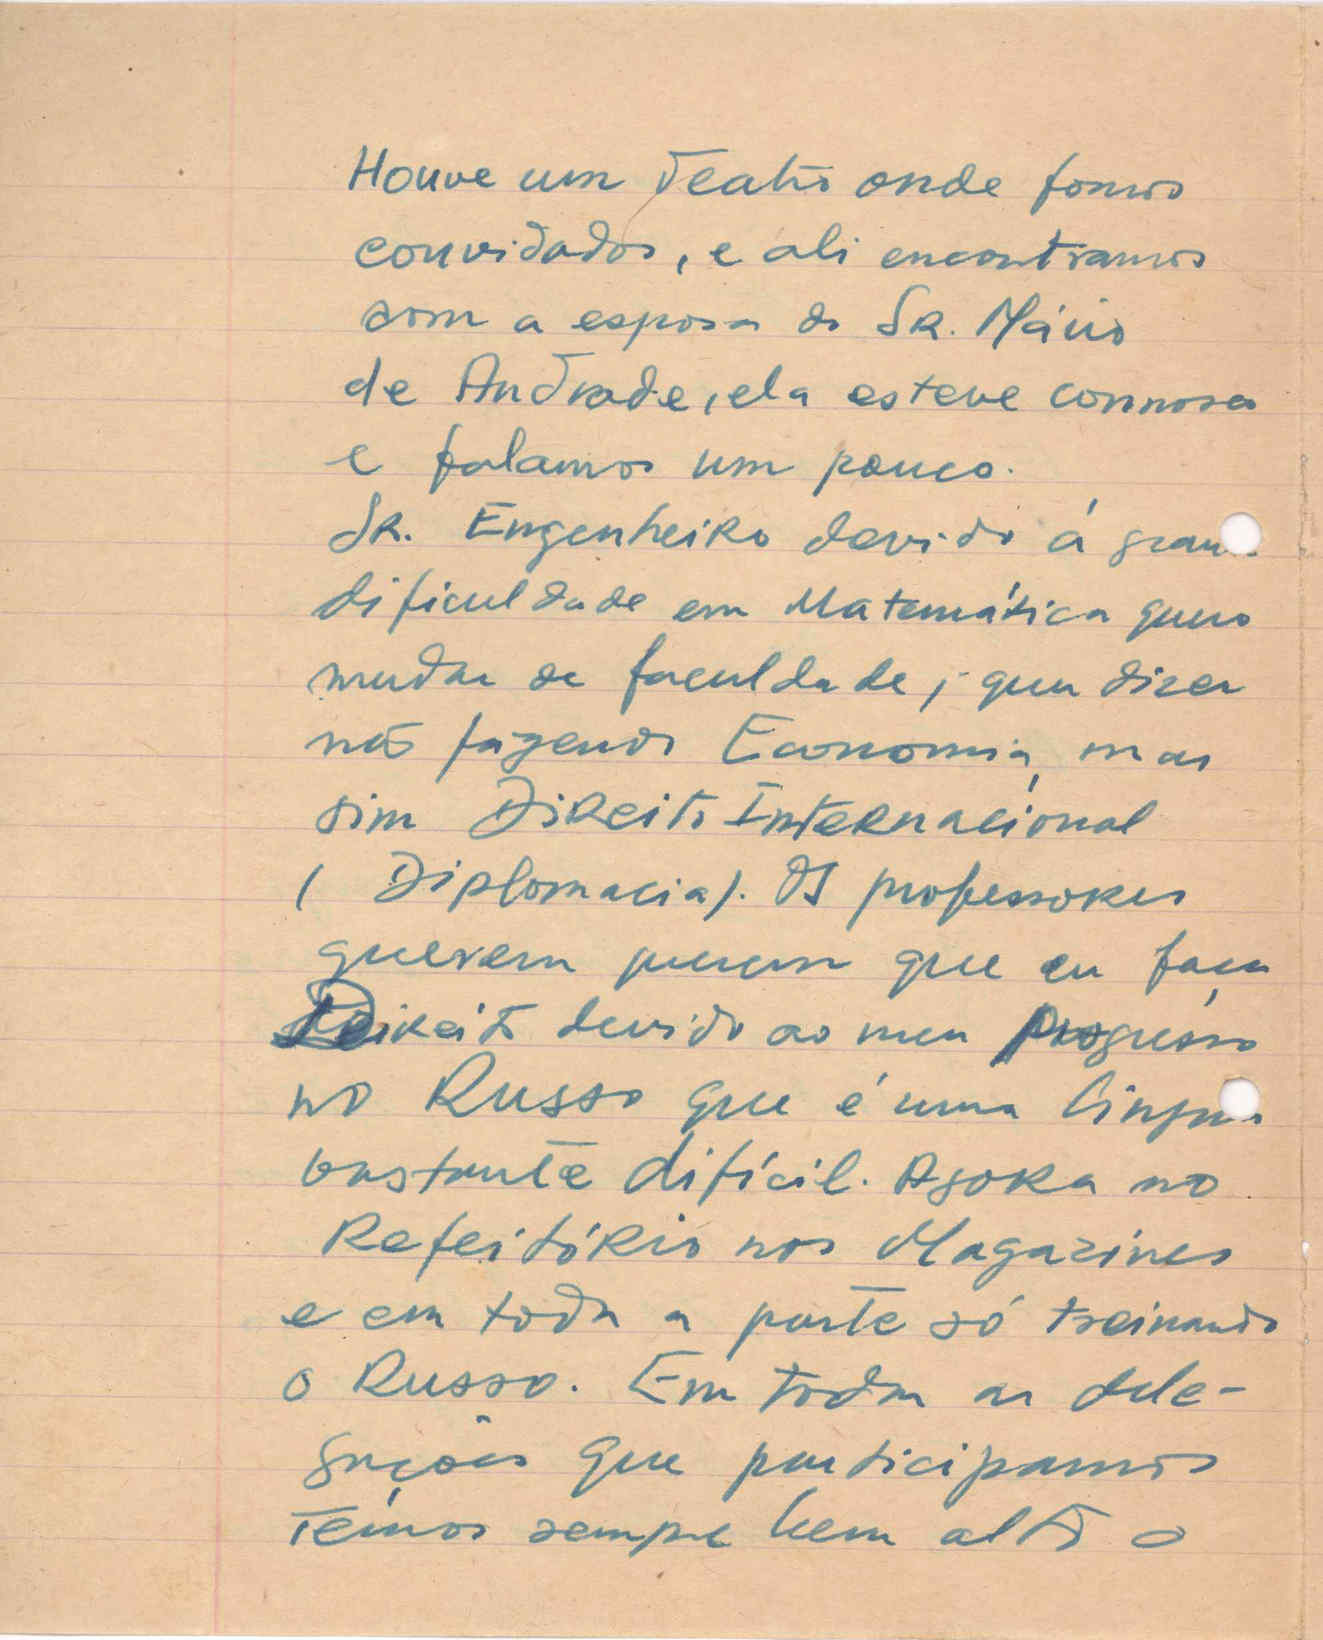 Houve um Teatro onde fomos
convidados, e ali encontramos
com a esposa do SR. Mário
de Andrade, ela esteve connosco
e falamos um pouco.
SR. Engenheiro devido á grande
dificuldade em Matemática quero
mudar de faculdade, quer dizer
não fazendo Economia, mas
sim Direito Internacional
(Diplomacia). Os professores
querem que eu faça
Direito devido ao meu progresso
no Russo que é uma lingua
bastante difícil. Agora no
Refeitório nos Magazines
e em toda a parte só treinando
o Russo. Em todas as dele-
gações que participamos
temos sempre bem alto o